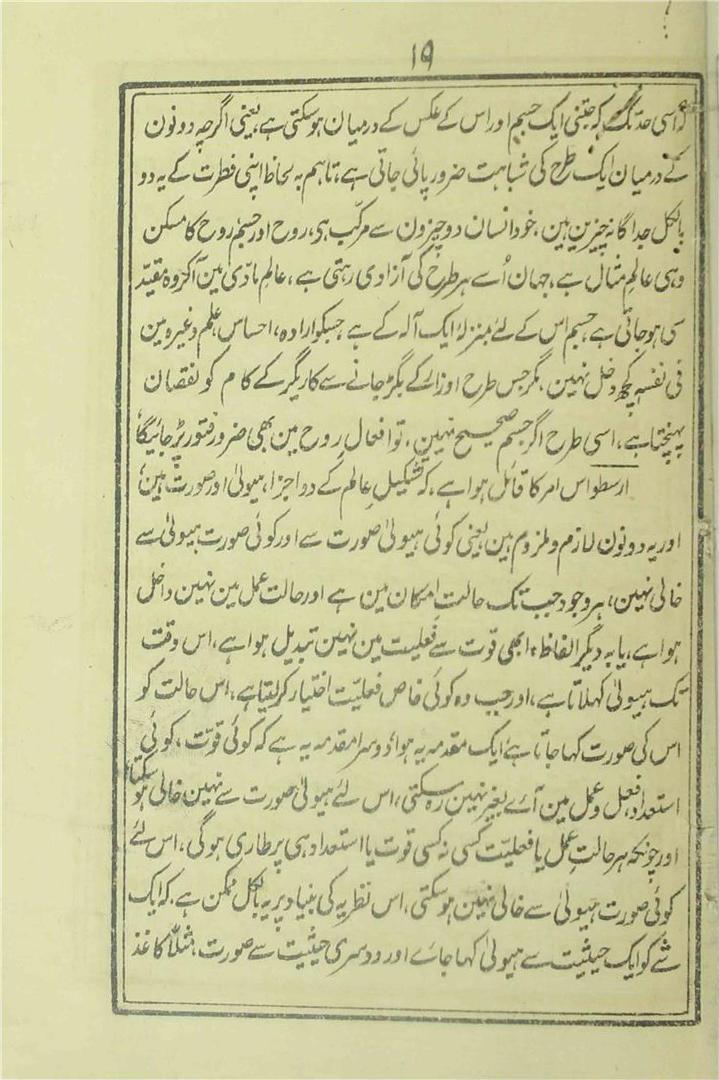 ۱۹
اسی حد تک کہ جتنی ایک جسم اور اس کے عکس کے درمیان ہوسکتی ہے، یعنی اگرچہ دونون
کے درمیان ایک طرح کی شباہت ضرور پائی جاتی ہے، تاہم بہ لحاظ اپنی فطرت کے یہ دو
بالکل جداگانہ چیزین ہین، خود انسان دو چیزون سے مرکّب ہی، روح اور جسم، روح کا مسکن
وہی عالمِ مثال ہے، جہان اُسے ہر طرح کی آزادی رہتی ہے، عالمِ مادّی مین آکر وہ مقیّد
سی ہوجاتی ہے، جسم اس کے لئے بمنزلۂ ایک آلہ کے ہے جسکو ارادہ، احساس، علم وغیرہ مین
فی نفسہٖ کچھ دخل نہین، مگر جس طرح اوزار کے بگڑ جانے سے کاریگر کے کام کو نقصان
پہنچتا ہے، اسی طرح اگر جسم صحیح نہین، تو افعالِ روح مین بھی ضرور فتور پڑ جائیگا،
ارسطو اس امر کا قائل ہوا ہے، کہ تشکیلِ عالم کے دو اجزا، ہیولیٰ اور صورت ہین،
اور یہ دونون لازم و ملزوم ہین یعنی کوئی ہیولیٰ صورت سے اور کوئی صورت ہیولیٰ سے
خالی نہین، ہر وجود جب تک حالتِ امکان مین ہے اور حالت عمل مین نہین داخل
ہوا ہے، یا بہ دیگر الفاظ، ابھی قوّت سے فعلیت مین نہین تبدیل ہوا ہے، اس وقت
تک ہیولیٰ کہلاتا ہے، اور جب وہ کوئی خاص فعلیّت اختیار کرلیتا ہے، اس حالت کو
اس کی صورت کہا جاتا ہے، ایک مقدمہ یہ ہوا، دوسرا مقدمہ یہ ہے کہ کوئی قوّت، کوئی
استعداد، فعل و عمل مین آئے بغیر نہین رہ سکتی، اس لئے ہیولیٰ صورت سے نہین خالی ہو سکتا،
اور چونکہ ہر حالتِ عمل یا فعلیّت کسی نہ کسی قوت یا استعداد ہی پر طاری ہوگی، اس لئے
کوئی صورت ہیولیٰ سے خالی نہین ہوسکتی، اس نظریہ کی بنیاد پر یہ بالکل ممکن ہے، کہ ایک
شے کو ایک حیثیت سے ہیولیٰ کہا جائے اور دوسری حیثیت سے صورت، مثلاً کاغذ